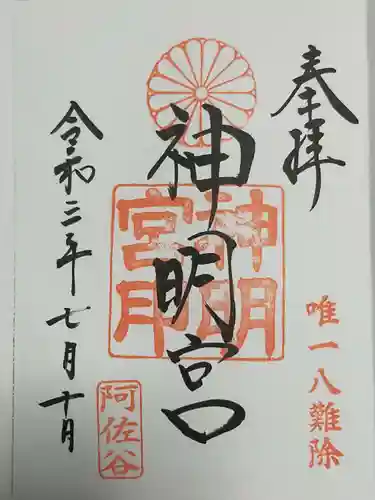 奉拝
唯一八難除
神明宮
神明宮
令和三年七月十日
阿佐谷